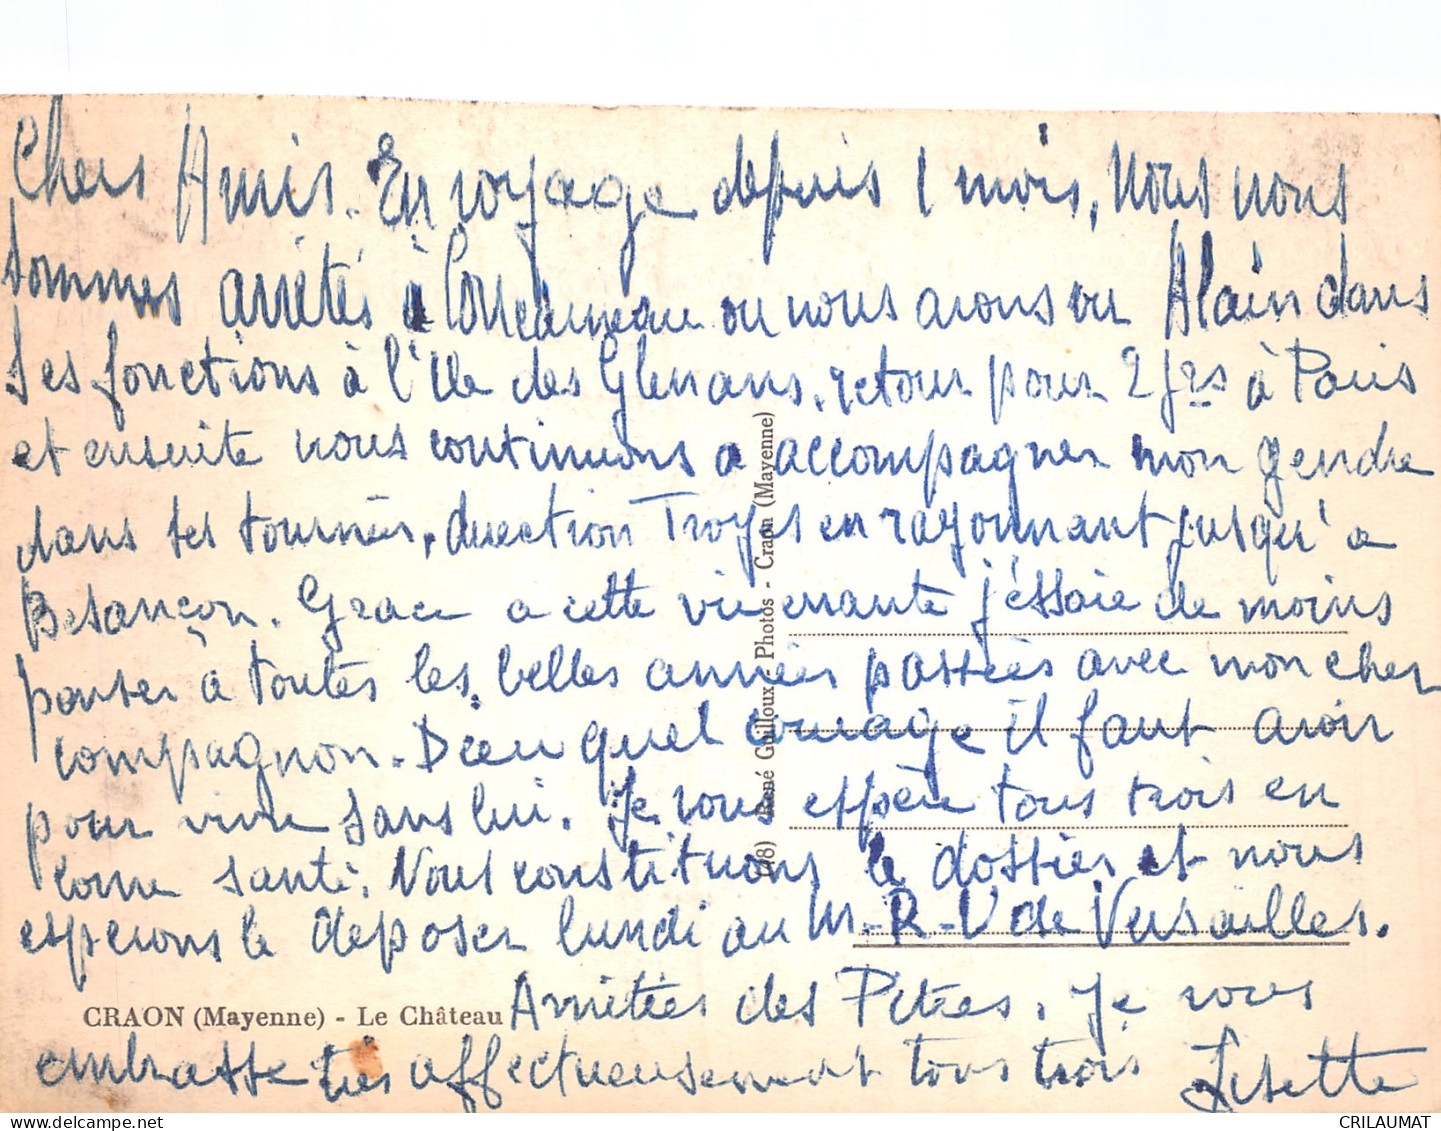 Chers Amis. En voyage depuis 1 mois, nous nous
sommes arrêtés à Concarneau ou nous avons vu Alain dans
ses fonctions à l'Ile des Glénans, retour pour 2 jrs à Paris
et ensuite nous continuons a accompagner mon gendre
dans ses tournées, direction Troyes en rayonnant jusqu'a
Besançon. Grace a cette vie errante j'éssaie de moins
penser à toutes les belles années passées avec mon cher
compagnon. Dieu quel courage il faut avoir
pour vivre sans lui. Je vous espère tous trois en
bonne santé. Nous constituons le dossier et nous
espérons le deposer lundi au M-R-U de Versailles.
Amitiés des Pitres. Je vous
embrasse très affectueusement tous trois Lisette
CRAON (Mayenne) - Le Château
René Guilloux - Photos - Craon (Mayenne)
CRILAUMAT